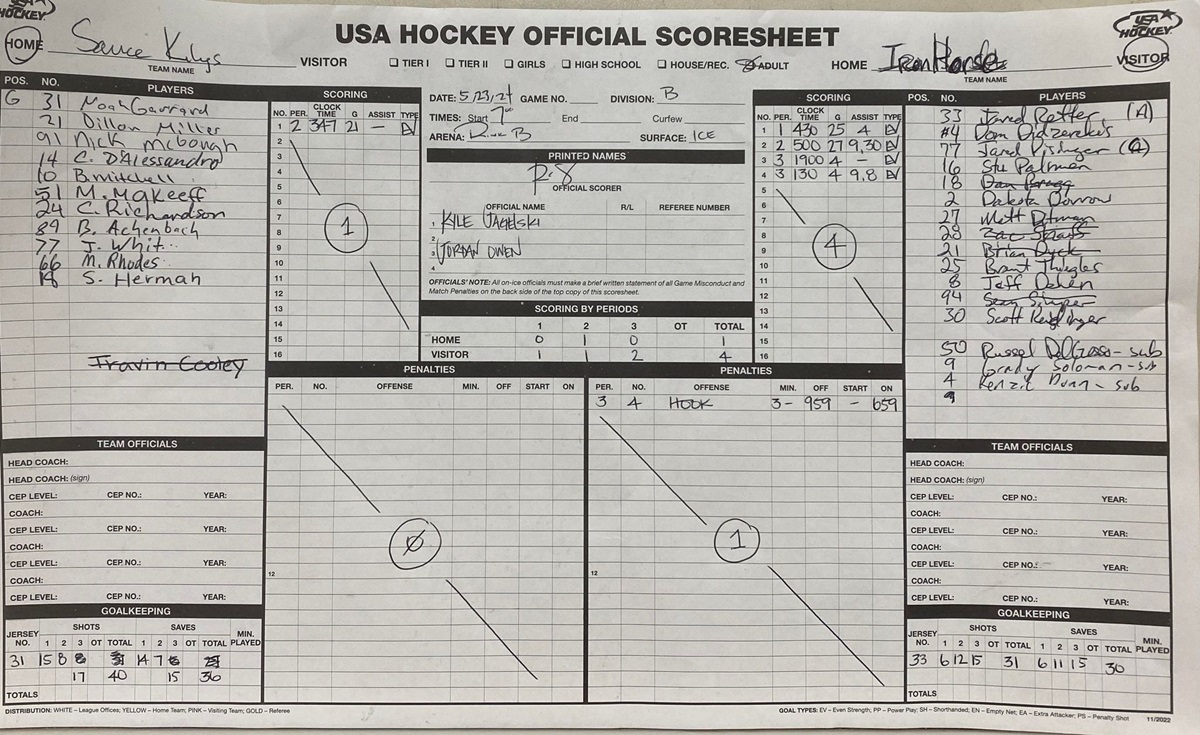 USA HOCKEY
USA HOCKEY OFFICIAL SCORESHEET
USA HOCKEY
HOME Sauce VISITOR
TEAM NAME
☐ TIER I ☐ TIER II ☐ GIRLS ☐ HIGH SCHOOL ☐ HOUSE/REC. ADULT
HOME Iron Horse VISITOR
TEAM NAME
POS. NO. PLAYERS
G 31 Noah Garrard
21 Dillon Miller
91 Nick McGough
14 C. D'Alessandro
10 B. Mitchell
51 M. Makeeff
24 C. Richardson
89 B. Achenbach
77 J. Whit...
66 M. Rhodes
18 S. Herman
Travin Cooley
SCORING
NO. PER. CLOCK TIME G ASSIST TYPE
1 2 347 21 — EV
2
3
4
5
6
7
8
9
10
11
12
13
14
15
16
1
DATE: 5/23/24 GAME NO. DIVISION: B
TIMES: Start 7:00 End Curfew
ARENA: Rink B SURFACE: ICE
PRINTED NAMES
OFFICIAL SCORER
OFFICIAL NAME R/L REFEREE NUMBER
1 KYLE JAGELSKI
2
3 JORDAN OWEN
4
OFFICIALS' NOTE: All on-ice officials must make a brief written statement of all Game Misconduct and
Match Penalties on the back side of the top copy of this scoresheet.
SCORING BY PERIODS
1 2 3 OT TOTAL
HOME 0 1 0 1
VISITOR 1 1 2 4
SCORING
NO. PER. CLOCK TIME G ASSIST TYPE
1 1 430 25 4 EV
2 2 500 27 9,30 EV
3 3 1900 4 — EV
4 3 130 4 9,8 EV
5
6
7
8
9
10
11
12
13
14
15
16
4
POS. NO. PLAYERS
33 Jared Rotter (A)
#4 Dom
77 Jared
16 Stu Palmien
18 Dan
2 Dakota Dorrow
27 Matt Ditman
28 Zac
21 Brian Dyck
25 Brant
8 Jeff Dahen
94 Sean
30 Scott
50 Russel DelGrosso - sub
9 Grady Soloman - sub
4 Kenzie Dunn - sub
9
PENALTIES
PER. NO. OFFENSE MIN. OFF START ON
12
0
PENALTIES
PER. NO. OFFENSE MIN. OFF START ON
3 4 HOOK 3 - 959 - 659
12
1
TEAM OFFICIALS
HEAD COACH:
HEAD COACH: (sign)
CEP LEVEL: CEP NO.: YEAR:
COACH:
CEP LEVEL: CEP NO.: YEAR:
COACH:
CEP LEVEL: CEP NO.: YEAR:
COACH:
CEP LEVEL: CEP NO.: YEAR:
GOALKEEPING
SHOTS SAVES
JERSEY NO. 1 2 3 OT TOTAL 1 2 3 OT TOTAL MIN. PLAYED
31 15 8 8 31 14 7 6 27
17 40 15 36
TOTALS
TEAM OFFICIALS
HEAD COACH:
HEAD COACH: (sign)
CEP LEVEL: CEP NO.: YEAR:
COACH:
CEP LEVEL: CEP NO.: YEAR:
COACH:
CEP LEVEL: CEP NO.: YEAR:
COACH:
CEP LEVEL: CEP NO.: YEAR:
GOALKEEPING
SHOTS SAVES
JERSEY NO. 1 2 3 OT TOTAL 1 2 3 OT TOTAL MIN. PLAYED
33 6 12 15 31 6 11 15 30
TOTALS
DISTRIBUTION: WHITE – League Offices; YELLOW – Home Team; PINK – Visiting Team; GOLD – Referee
GOAL TYPES: EV – Even Strength; PP – Power Play; SH – Shorthanded; EN – Empty Net; EA – Extra Attacker; PS – Penalty Shot 11/2022